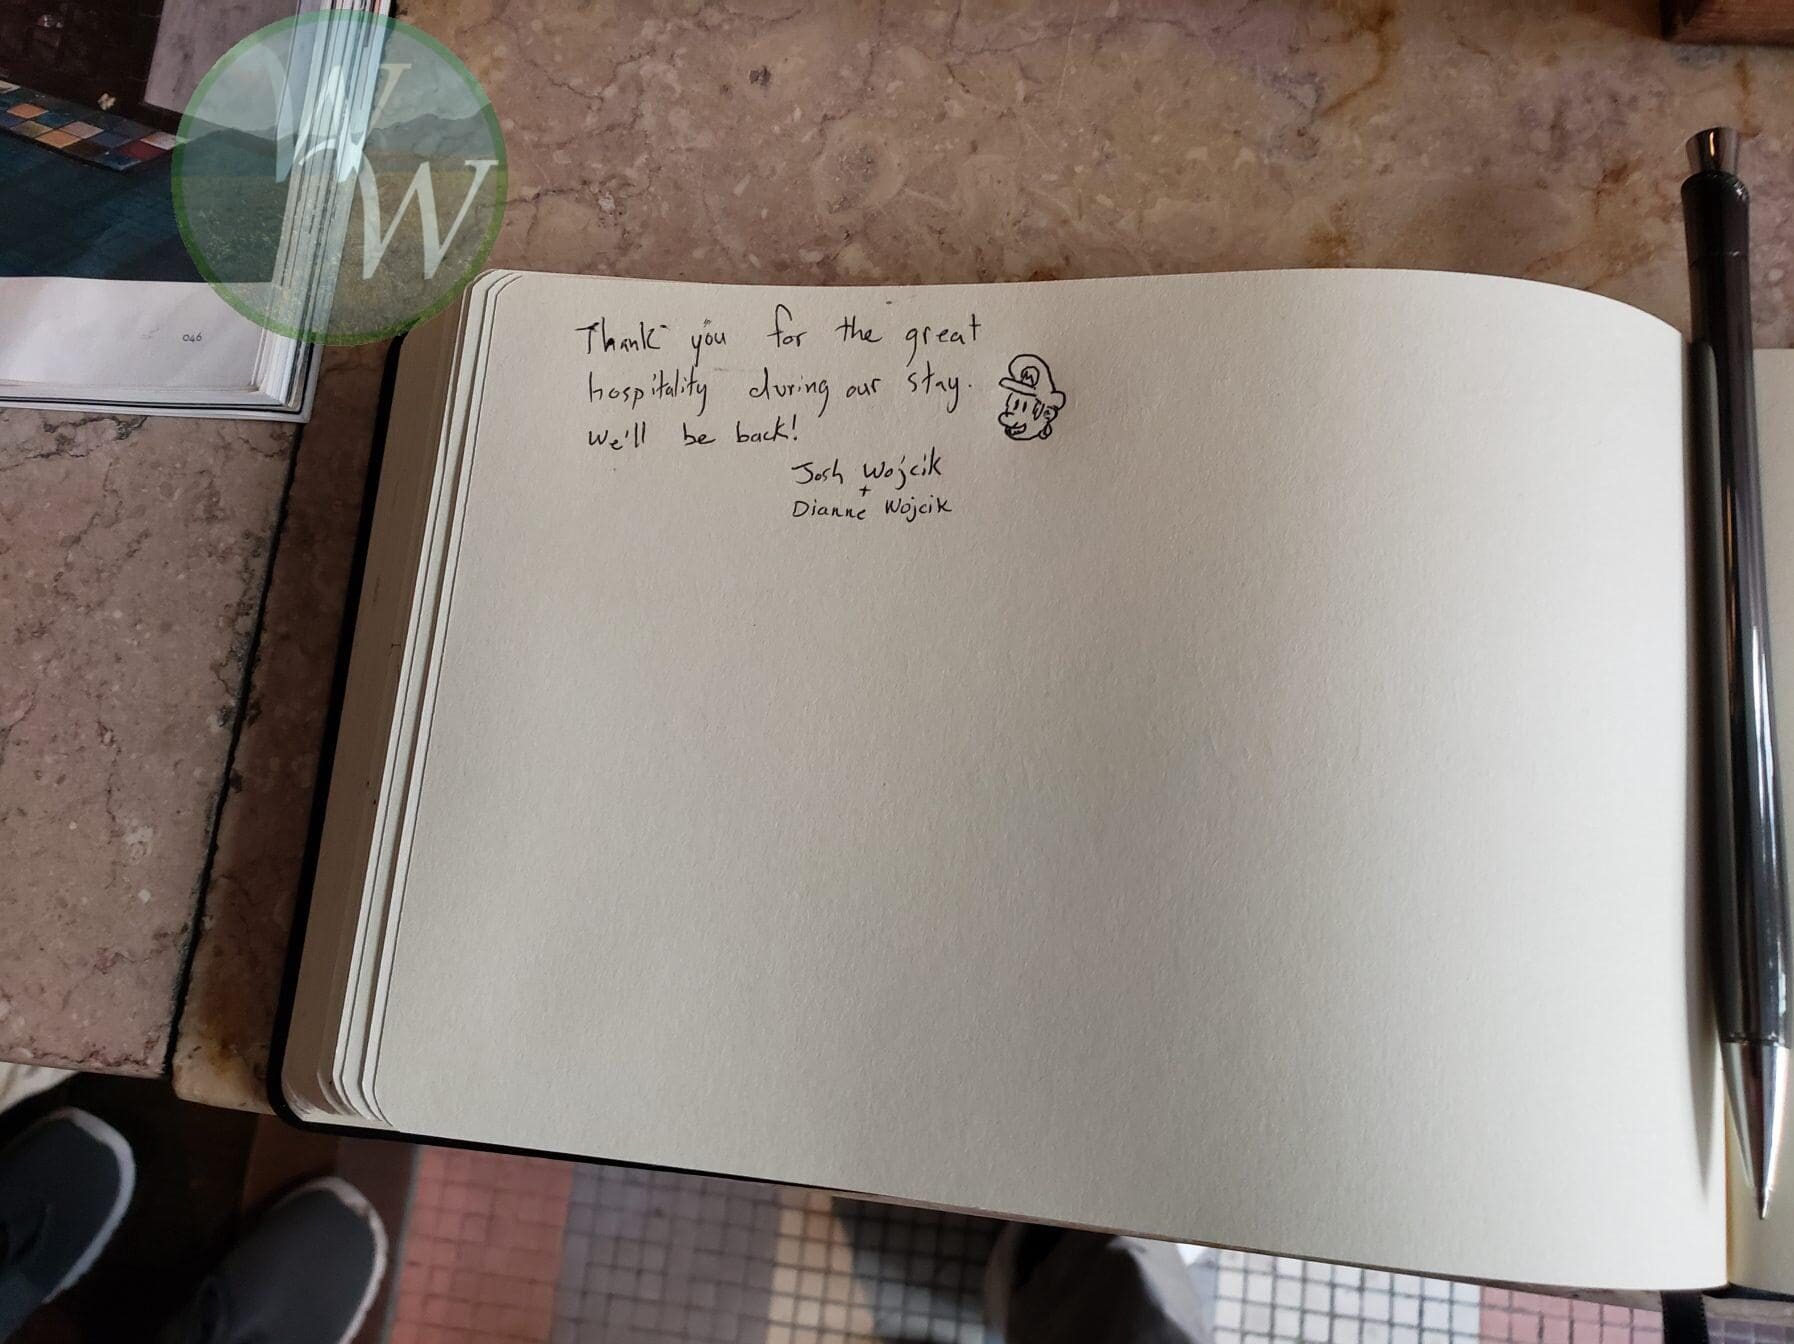 WW
046
Thank you for the great
hospitality during our stay.
We'll be back!
Josh Wojcik
+
Dianne Wojcik
M